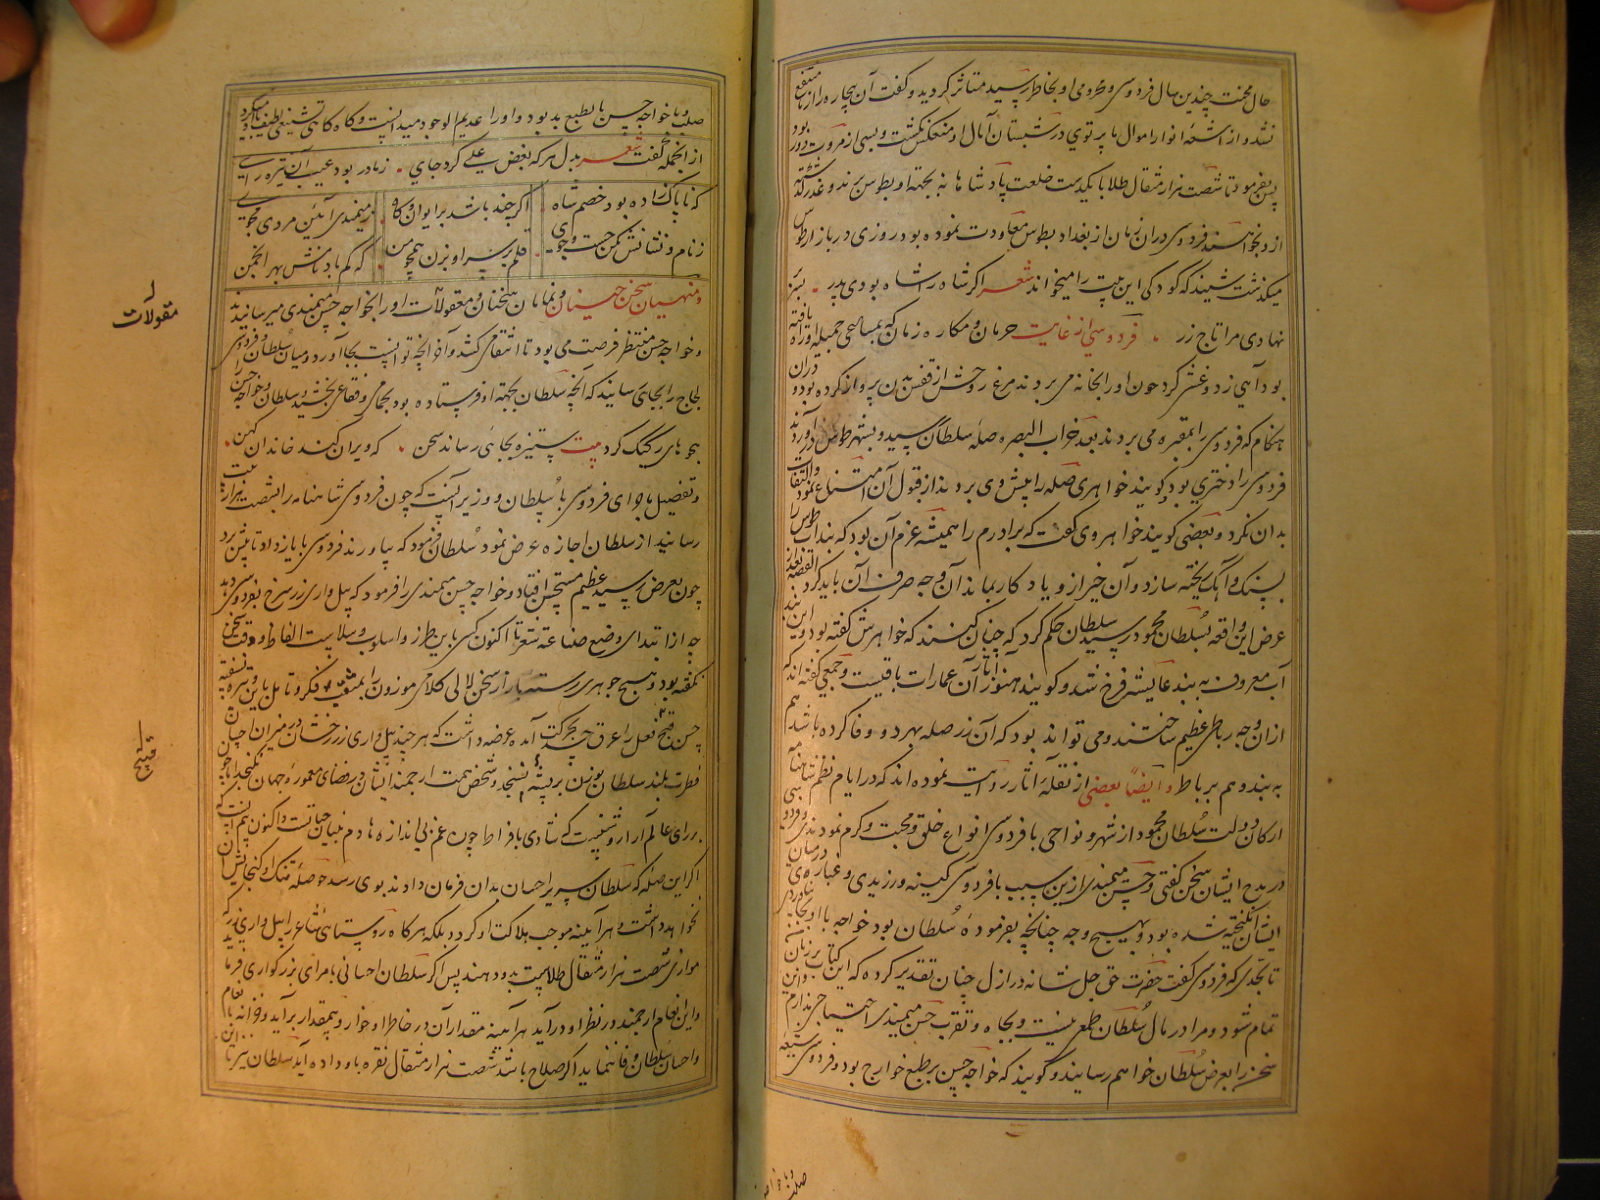 حال محنت چندین سال فردوسی و محرومی او بخاطر رسید متاثر کردید و کفت آن بیچاره را از ما نفع
نشد و از اشعهٔ انوار اموال ما پرتوی در شبستان آمال او منعکس نکشت و بسی از مروت دور بود
پس بفرمود تا شصت هزار مثقال طلا با یکدست خلعت پادشاهانه بجهته او بطوس برند و عذر کذشته
ازو بخواهند فردوسی در آن زمان از بغداد بطوس معاودت نموده بود روزی در بازار طوس
میکذشت شنید که کودکی این بیت را میخواند شعر اکر شاه را شاه بودی پدر . بسر بر
نهادی مرا تاج زر . فردوسی از غایت حرمان و مکاره زمان که بمساعی جمیله او راه یافته
بود آهی زد و غش کرد چون او را بخانه می بردند مرغ روحش از قفس بدن پرواز کرده بود و در آن
هنکام که فردوسی را بمقبره می بردند بعد خراب البصره صلهٔ سلطان رسید و بشهر طوس در آوردند
فردوسی را دختری بود کویند خواهری صله را پیش وی بردند از قبول آن امتناع نمود و التفات
بدان نکرد و بعضی کویند خواهر وی کفت که برادرم را همیشه عزم آن بود که بند آب طوس را
بسنک و آهک ریخته سازد و آن خیر ازو یادکار بماند آن وجه صرف آن باید کرد القصه بعد از
عرض این واقعه بسلطان محمود رسید سلطان حکم کرد که چنان کنند که خواهرش کفته بود و این بند
آب معروف به بند عایشه فرخ شد و کویند هنوز آثار آن عمارات باقیست و جمعی کفته اند که
از آن وجه رباطی عظیم ساختند و می تواند بود که آن زر صله بهر دو وفا کرده باشد هم
به بند و هم بر باط و ایضاً بعضی از نقلهٔ آثار روایت نموده اند که در ایام نظم شاهنامه
ارکان دولت سلطان محمود از شهر و نواحی با فردوسی انواع خلق و محبت و کرم نمودندی و فردوسی
در مدح ایشان سخن کفتی و حسن میمندی ازین سبب با فردوسی کینه ورزیدی و غباری در میان
ایشان انکیخته شده بود و بهیچ وجه چنانچه بفرمودهٔ سلطان بود خواجه با او بجا نیاوردی
تا بحدی که فردوسی کفت حضرت حق جل شانه در ازل چنان تقدیر کرده که این کتاب بر زبان من
تمام شود و مرا در مال سلطان طمعی نیست و بجاه و تقرب حسن میمندی احتیاجی ندارم و این
سخن را بعرض سلطان خواهم رسانید و کویند که خواجه حسن بر طبع خوارج بود و فردوسی شیعه
صلب و با خواجه
صلب و با خواجه حسن بالطبع بد بود و او را عدیم الوجود میدانست و کاه کاهی تشنیعی لطیف باو میکرد
از انجمله کفت شعر بدل هر که بغض علی کرد جای . ز مادر بود عیب آن تیره رای
که ناپاک زاده بود خصم شاه . اکر چند باشد بر ایوان و کاه . ز میمندی آئین مردی مجوی
ز نام و نشانش مکن جست و جوی . قلم بر سر او بزن همچو من . که کم باد نامش بهر انجمن
و منهیان سخن چینان و نمامان سخنان و معقولات او را بخواجه حسن میمندی میرسانیدند
مقولات
و خواجه حسن منتظر فرصت می بود تا انتقامی کشد و آخر آنچه توانست بجا آورد و میان سلطان و فردوسی
لجاج را بجای رسانید که آنچه سلطان بجهته او فرستاده بود بحمامی و فقاعی بخشید و سلطان و خواجه حسن را
هجوهای رکیک کرد بیت ستیزه بجائی رساند سخن . که ویران کند خاندان کهن .
و تفصیل ماجرای فردوسی با سلطان و وزیر آنست که چون فردوسی شاهنامه را بشصت هزار بیت
رسانید از سلطان اجازه عرض نمود سلطان فرمود که بیاورند فردوسی با یاز داد تا پیش برد
چون بعرض رسید عظیم مستحسن افتاد و خواجه حسن میمندی را فرمود که پیل واری زر سرخ بفردوسی دهد
چه از ابتدای وضع صناعه شعر تا اکنون کسی باین طرز و اسلوب و سلاست الفاظ و دقت سخن
نکفته بود و هیچ جوهری رسته بازار سخن لالی کلامی موزون را بمثقب فکر و تامل باین وتیره نسفته
حسن قبیح فعل را عرق حسد بحرکت آمده عرضه داشت که هر چند پیل واری زر رخشان در میزان احسان
قبیح
فطرت بلند سلطان بوزن بر پشه نسنجد و شخص همت ارجمند ایشان در فضای معموره جهان نکنجد اما چون
بر رای عالم آرا روشنست که شادی بافراط چون غم بی اندازه هادم بنیان حیاتست و اکنون بیم آنست که
اکر این صله که سلطان سریر احسان بدان فرمان دادند بوی رسد حوصلهٔ تنک او کنجایش آن
نخواهد داشت و هر آینه موجب هلاکت او کردد بلکه هرکاه روستائی شاعر را پیل واری زر که
موازی شصت هزار مثقال طلاست بدو دهند پس اکر سلطان احسانی با مرای بزرکواری فرماید
و این انعام ارجمند در نظر او در آید هر آینه مقدار آن در خاطر او خوار و بیمقدار بر آید و خزانه با انعام
و احسان سلطان وفا ننماید اکر صلاح باشد شصت هزار مثقال نقره باو داده آید سلطان نیز تا این